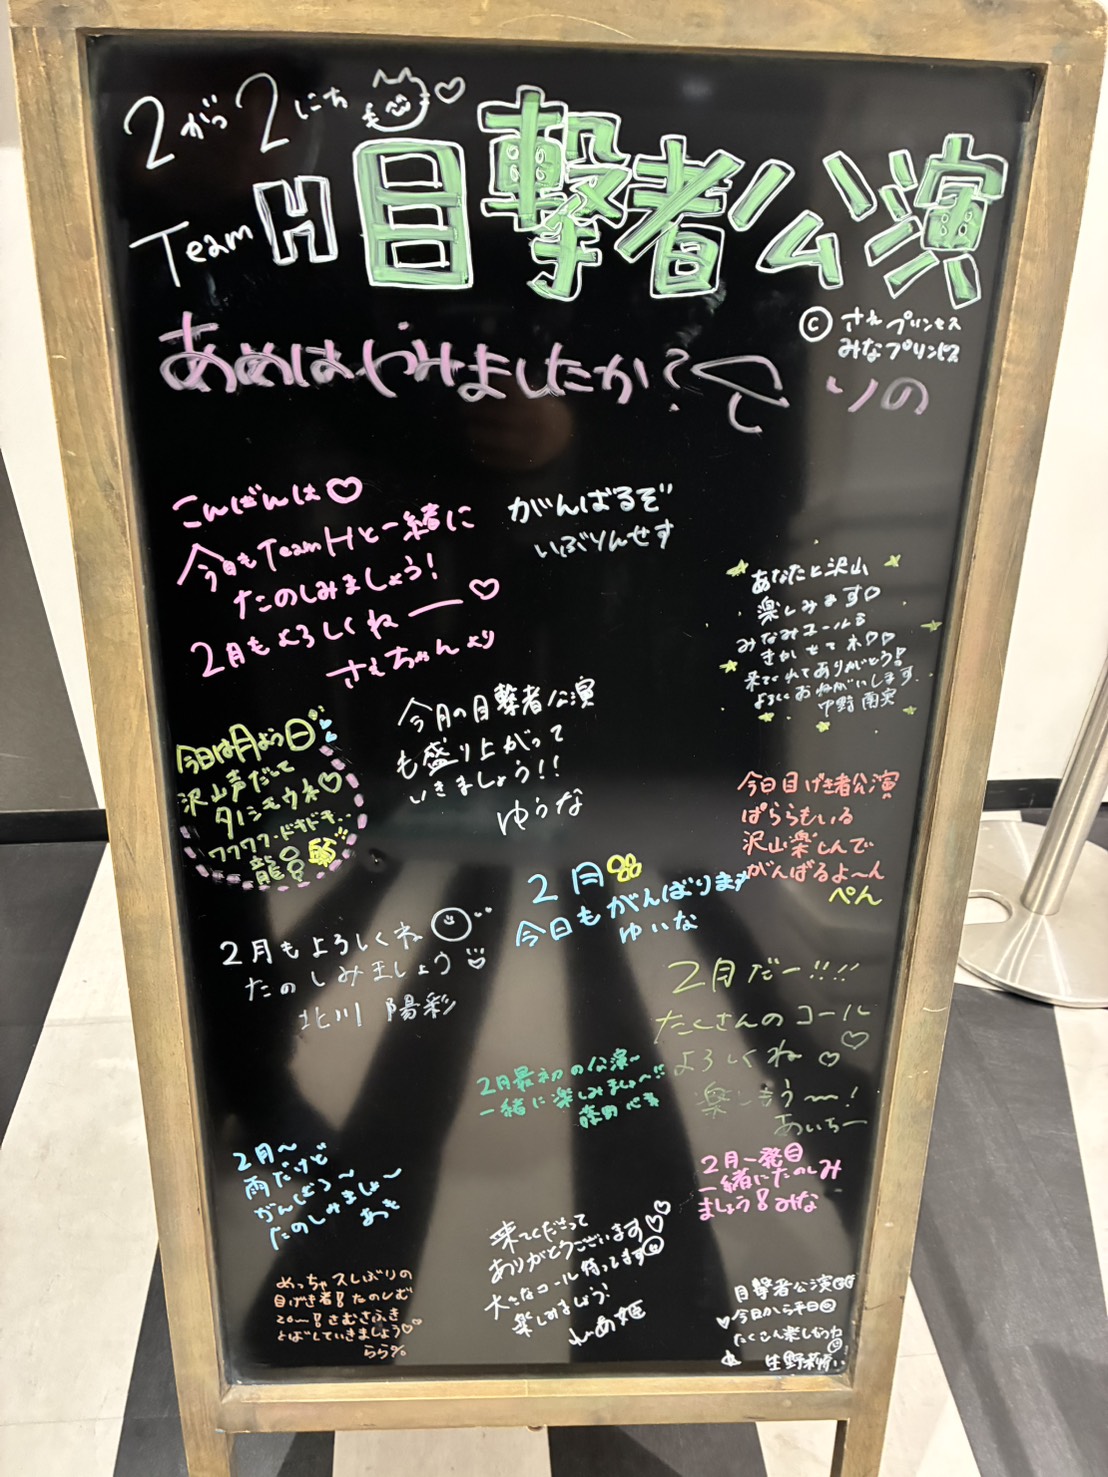 2がつ2にち
Team H 目撃者公演
© さえプリンセス
みなプリンセス
あめはやみましたか?
りの
こんばんは♡
今日もTeam Hと一緒に
たのしみましょう!
2月もよろしくねー♡
さえちゃんより
がんばるぞ
いぶりんせす
あなたと沢山
楽しみます♡
みなみコールも
きかせてネ♡♡
来てくれてありがとう!
よろしくおねがいします
中野 南実
今日は月よう日
沢山声だして
タノシモウネ♡
ワクワク・ドキドキ..
龍
今月の目撃者公演
も盛り上がって
いきましょう!!
ゆうな
今日目げき者公演
ぱららもいる
沢山楽しんで
がんばるよ〜ん
ぺん
2月
今日もがんばります
ゆいな
2月もよろしくね
たのしみましょう
北川 陽彩
2月だー!!!!
たくさんのコール
よろしくね♡♡
楽しもう〜!
あいちー
2月最初の公演〜
一緒に楽しみましょ〜!!
2月〜
雨だけど
がんばろ〜
たのしみましょ〜
あき
2月一発目
一緒にたのしみ
ましょう!みな
来てくださって
ありがとうございます♡♡
大きなコール待ってます
楽しみましょう!
めっちゃスしぶりの
目げき者!たのしむ
さむさふき
とばしていきましょう♡♡
らら%
目撃者公演
♥今日から平日
たくさん楽しもうね
生野莉奈